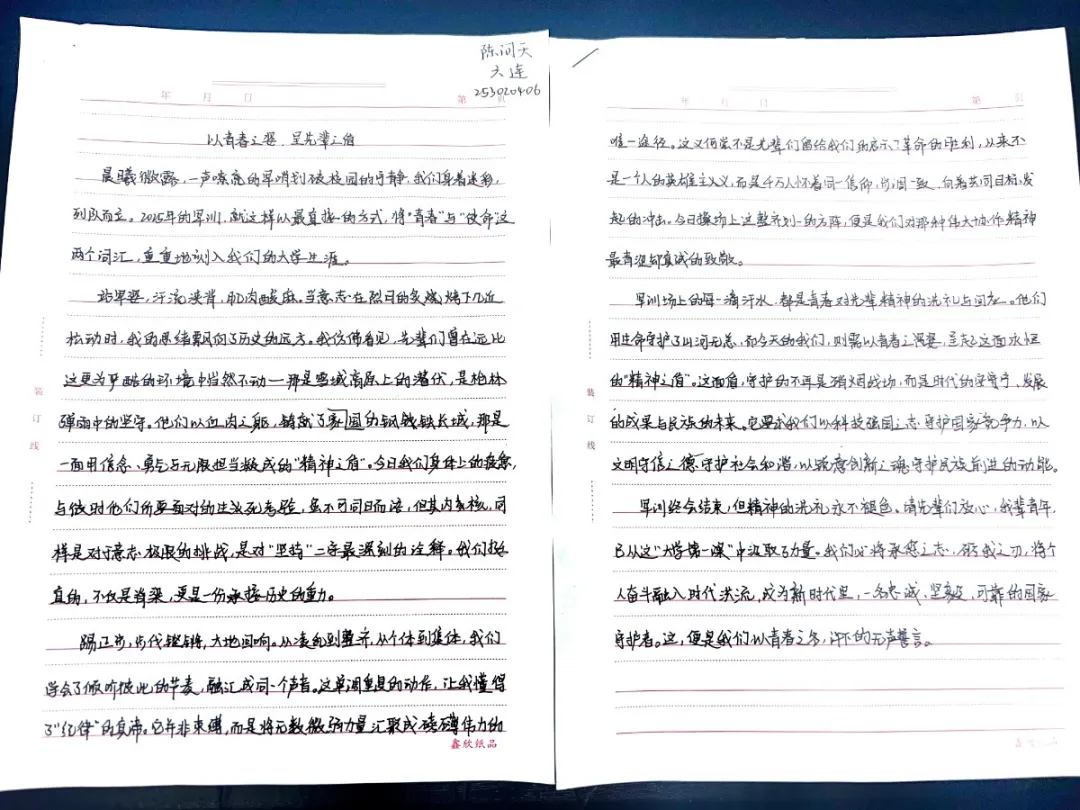 陈问天
六连
253020406
年 月 日 第 页
以青春之姿,呈先辈之盾
晨曦微露,一声嘹亮的军哨划破校园的宁静,我们穿着迷彩,
列队而立。2025年的军训,就这样以最直接的方式,将“青春”与“使命”这
两个词汇,重重地刻入我们的大学生涯。
站军姿,汗流浃背,肌肉酸麻。当意志在烈日的炙烤下几近
松动时,我的思绪飘向了历史的远方。我仿佛看见,先辈们曾在远比
这更为严酷的环境中岿然不动—那是雪域高原上的潜伏,是枪林
弹雨中的坚守。他们以血肉之躯,铸就了家国的钢铁长城,那是
一面用信念、勇气与无限担当凝成的“精神之盾”。今日我们身体上的疲惫,
与彼时他们所要面对的生死考验,虽不可同日而语,但其内核,同
样是对于意志极限的挑战,是对“坚持”二字最深刻的诠释。我们挺
直的,不仅是脊梁,更是一份承接历史的重力。
踢正步,步伐铿锵,大地回响。从凌乱到整齐,从个体到集体,我们
学会了倾听彼此的节奏,融汇成同一个声音。这单调重复的动作,让我懂得
了“纪律”的真谛。它并非束缚,而是将无数微弱力量汇聚成磅礴伟力的
鑫欣纸品
装
订
线
年 月 日 第 页
唯一途径。这又何尝不是先辈们留给我们的启示?革命的胜利,从来不
是一个人的英雄主义,而是千万人怀着同一信仰,步调一致,向着共同目标,发
起的冲击。今日操场上这整齐划一的方阵,便是我们对那种伟大协作精神
最青涩却真诚的致敬。
军训场上的每一滴汗水,都是青春对先辈精神的洗礼与回应。他们
用生命守护了山河无恙,而今天的我们,则需以青春之姿,呈起这面永恒
的“精神之盾”。这面盾,守护的不再是硝烟战场,而是时代的安宁、发展
的成果与民族的未来。它要求我们以科技强国之志守护国家竞争力,以
文明守信之德守护社会和谐,以锐意创新之魂守护民族前进的动能。
军训终会结束,但精神的洗礼永不褪色。请先辈们放心,我辈青年,
已从这“大学第一课”中汲取了力量。我们必将承您之志,砺我之刃,将个
人奋斗融入时代洪流,成为新时代里,一名忠诚、坚毅、可靠的国家
守护者。这,便是我们以青春之名,许下的无声誓言。
装
订
线